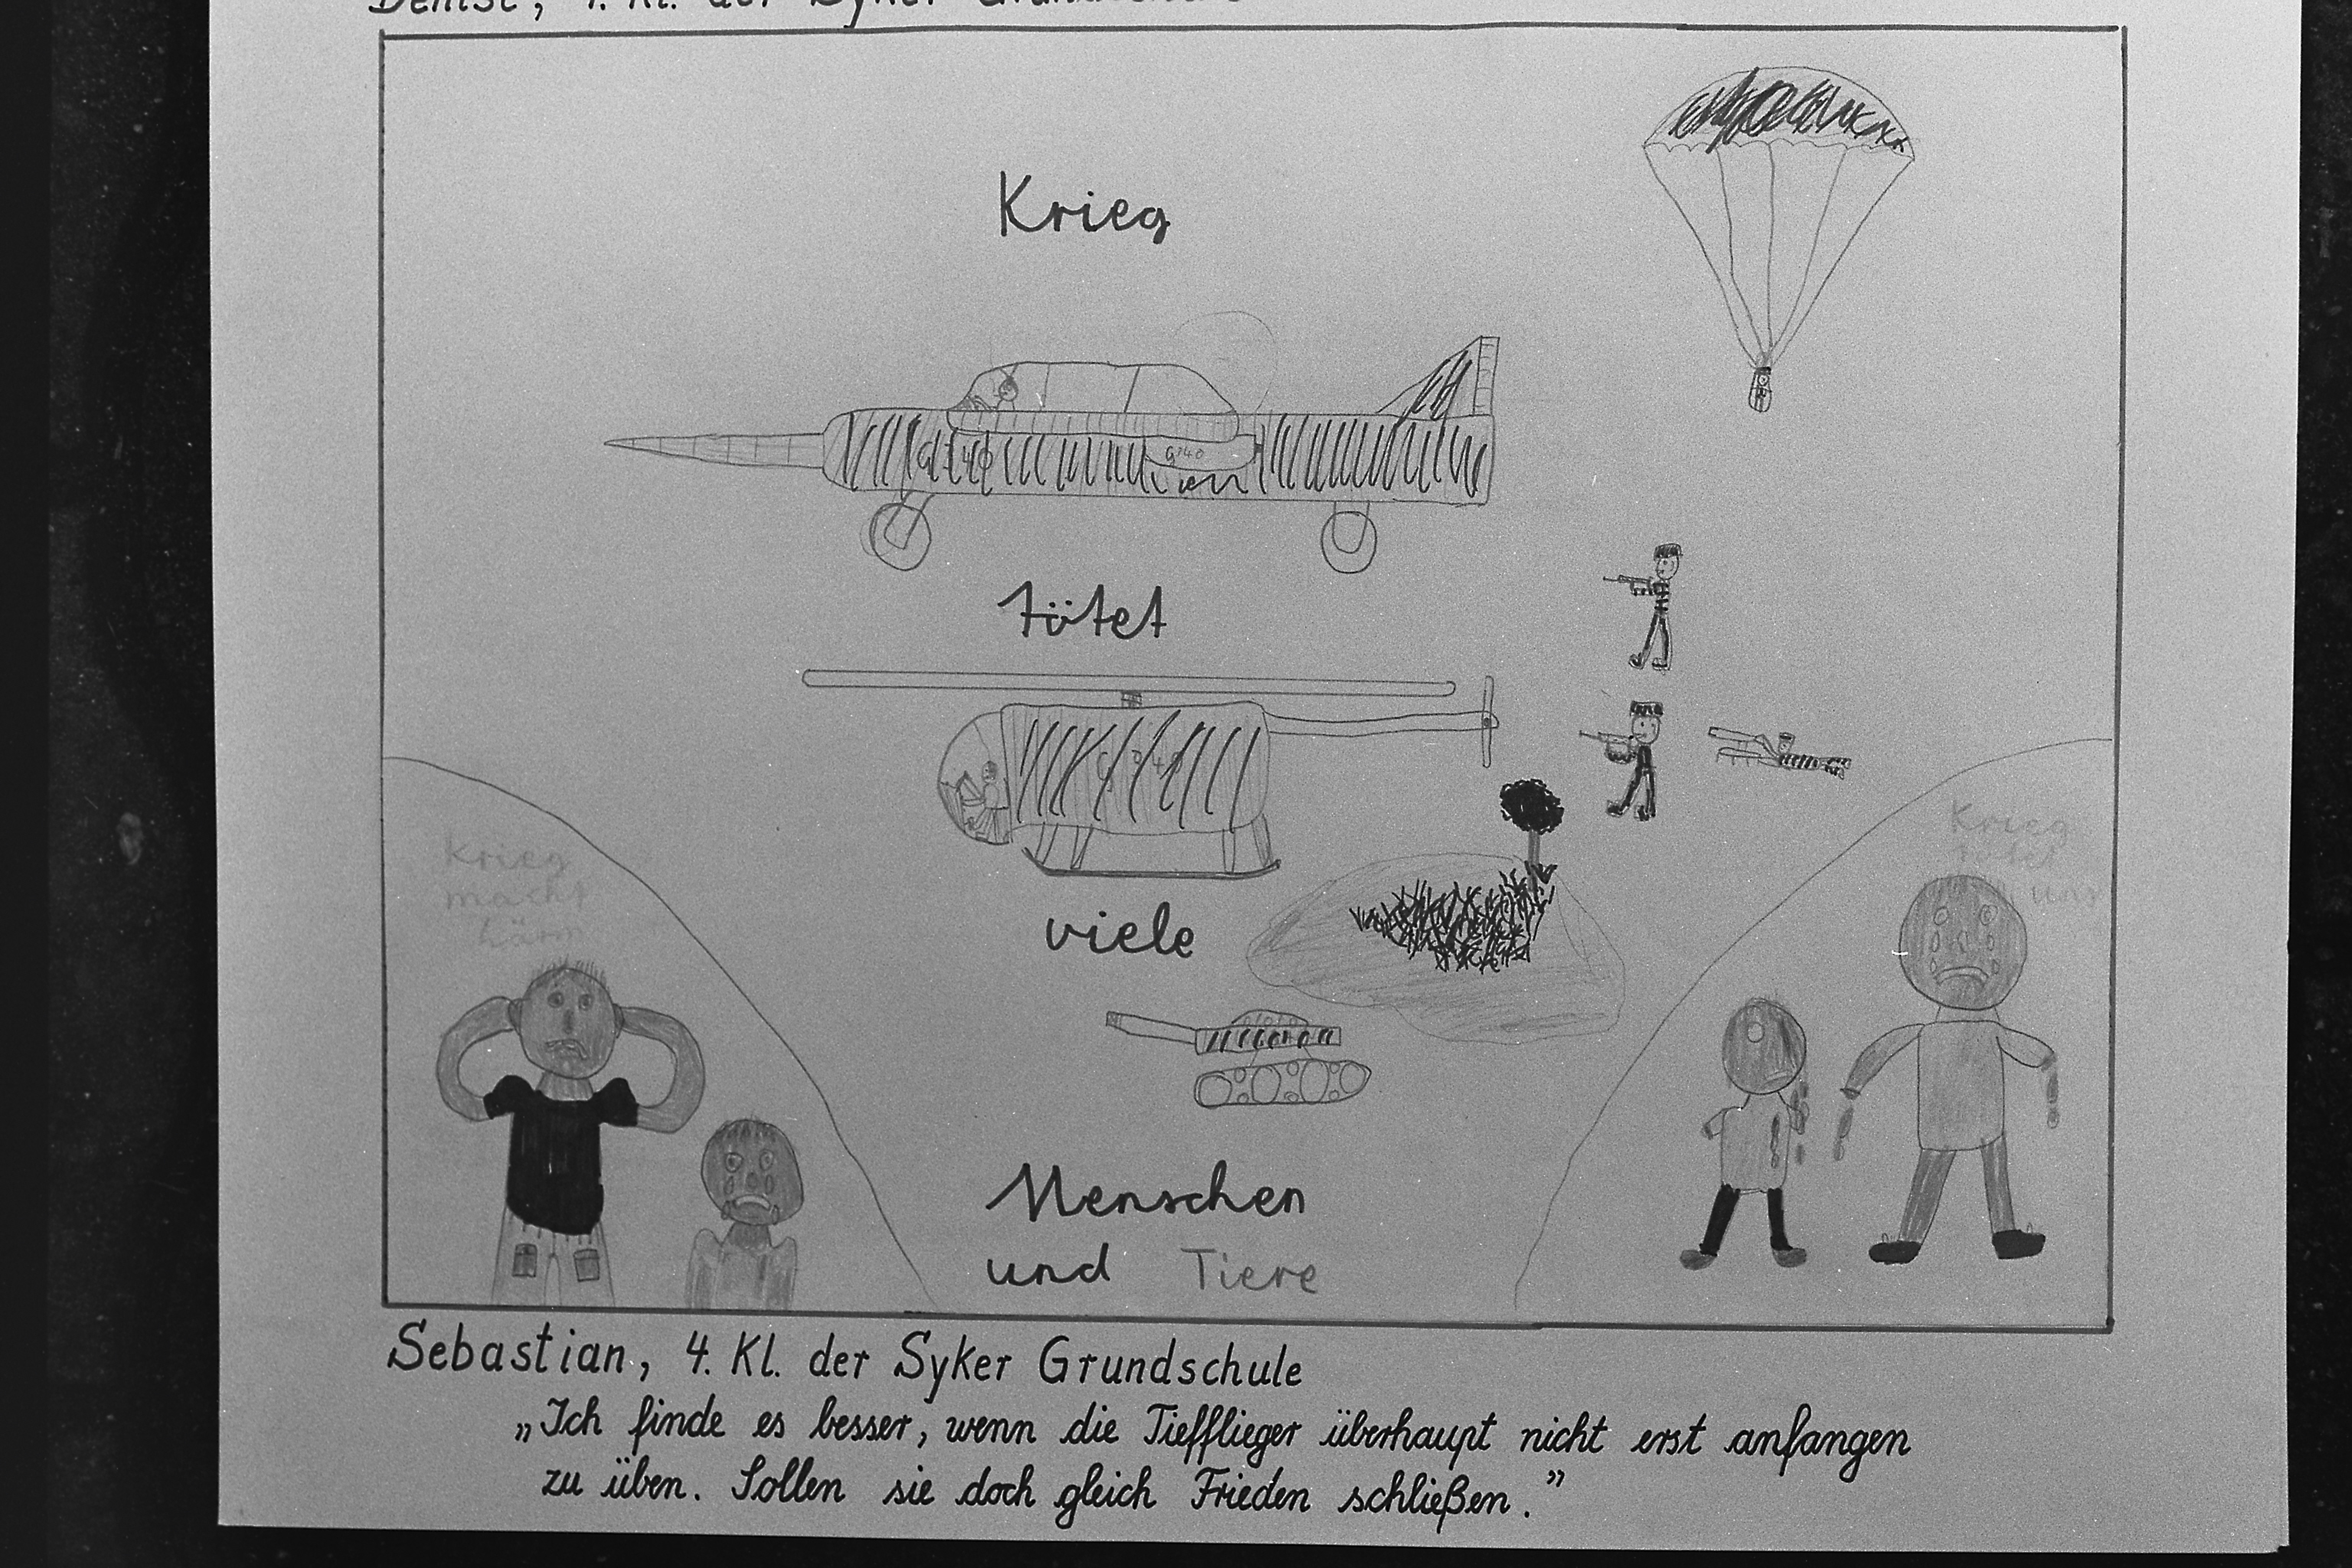 Krieg
G140
tötet
viele
Krieg
macht
Lärm
Krieg
tötet
uns
Menschen
und Tiere
Sebastian, 4. Kl. der Syker Grundschule
„Ich finde es besser, wenn die Tiefflieger überhaupt nicht erst anfangen
zu üben. Sollen sie doch gleich Frieden schließen.”